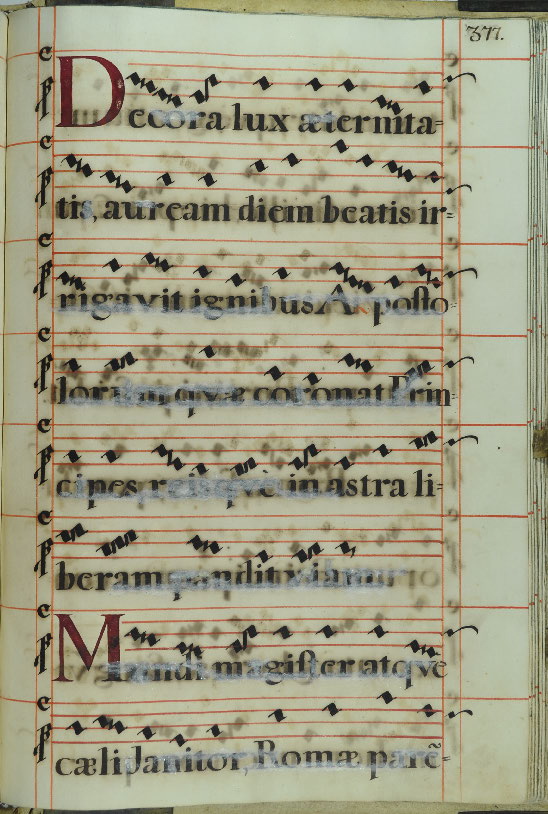 377.
Decora lux æternita=
tis, auream diem beatis ir=
rigavit ignibus Aposto=
lorum quæ coronat Prin=
cipes, reisquè in astra li=
beram pandit viam.
Mundi magister atquè
cæli Janitor, Romæ parē=